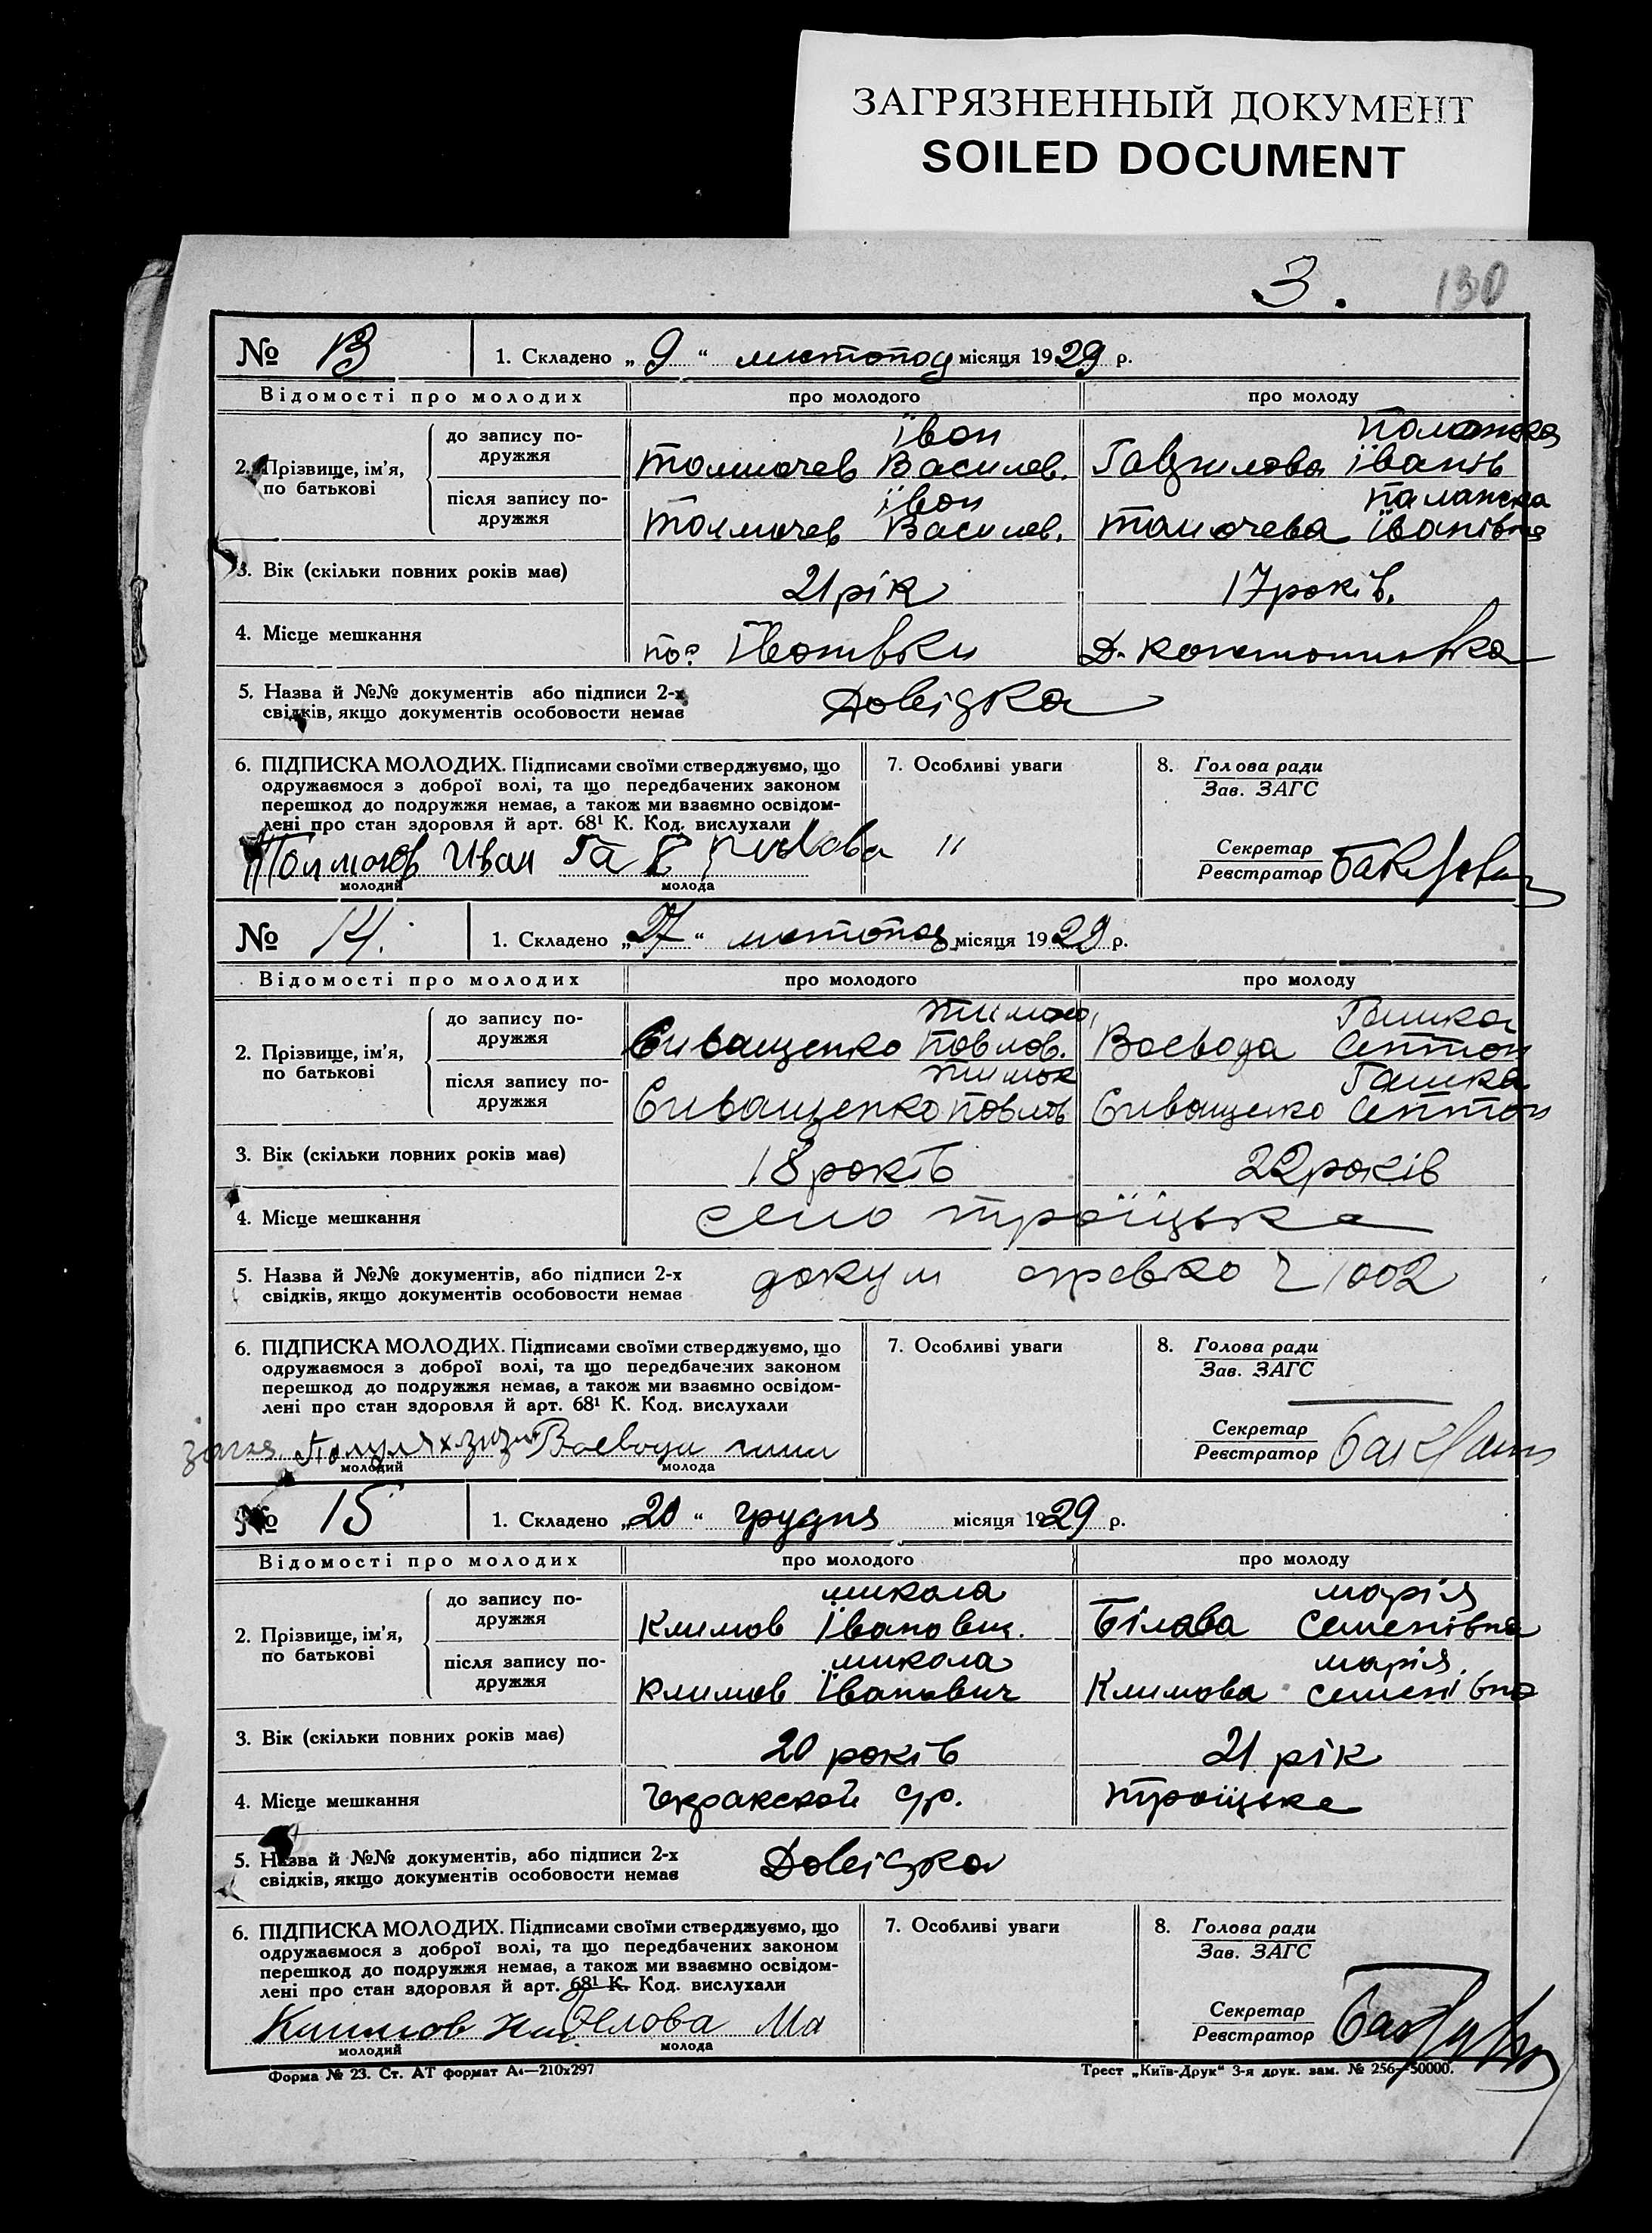 ЗАГРЯЗНЕННЫЙ ДОКУМЕНТ
SOILED DOCUMENT
3. 130
№ 13 1. Складено „9“ листопад місяця 1929 р.
Відомості про молодих про молодого про молоду
2. Прізвище, ім'я, по батькові
до запису подружжя Івон
Толмачев Василев. Іванів
після запису подружжя Івон
Толмачев Василев. Іванівна
3. Вік (скільки повних років має) 21 рік 17 років.
4. Місце мешкання
5. Назва й №№ документів або підписи 2-х
свідків, якщо документів особовости немає
Довідка
6. ПІДПИСКА МОЛОДИХ. Підписами своїми стверджуємо, що
одружаємося з доброї волі, та що передбачених законом
перешкод до подружжя немає, а також ми взаємно освідом-
лені про стан здоровля й арт. 68¹ К. Код. вислухали
Иван
молодий молода
7. Особливі уваги
"
8. Голова ради
Зав. ЗАГС
Секретар
Реєстратор
№ 14. 1. Складено „27“ листопад місяця 1929 р.
Відомості про молодих про молодого про молоду
2. Прізвище, ім'я, по батькові
до запису подружжя Ганка
Сиващенко Павлов. Воевода
після запису подружжя Ганка
Сиващенко Павлов Сиващенко
3. Вік (скільки повних років має) 18 років 22 років
4. Місце мешкання село Троїцьке
5. Назва й №№ документів, або підписи 2-х
свідків, якщо документів особовости немає
докум 1002
6. ПІДПИСКА МОЛОДИХ. Підписами своїми стверджуємо, що
одружаємося з доброї волі, та що передбачених законом
перешкод до подружжя немає, а також ми взаємно освідом-
лені про стан здоровля й арт. 68¹ К. Код. вислухали
молодий молода
7. Особливі уваги
8. Голова ради
Зав. ЗАГС
Секретар
Реєстратор
№ 15 1. Складено „20“ грудня місяця 1929 р.
Відомості про молодих про молодого про молоду
2. Прізвище, ім'я, по батькові
до запису подружжя микола марія
Климов Іванович. Білова Семенівна
після запису подружжя микола марія
Климов Іванович Климова семенівна
3. Вік (скільки повних років має) 20 років 21 рік
4. Місце мешкання Троїцьке
5. Назва й №№ документів, або підписи 2-х
свідків, якщо документів особовости немає
Довідка
6. ПІДПИСКА МОЛОДИХ. Підписами своїми стверджуємо, що
одружаємося з доброї волі, та що передбачених законом
перешкод до подружжя немає, а також ми взаємно освідом-
лені про стан здоровля й арт. 68¹ К. Код. вислухали
Климов Ник Белова Ма
молодий молода
7. Особливі уваги
8. Голова ради
Зав. ЗАГС
Секретар
Реєстратор
Форма № 23. Ст. АТ формат А₄—210х297 Трест „Київ-Друк“ 3-я друк. зам. № 256—50000.